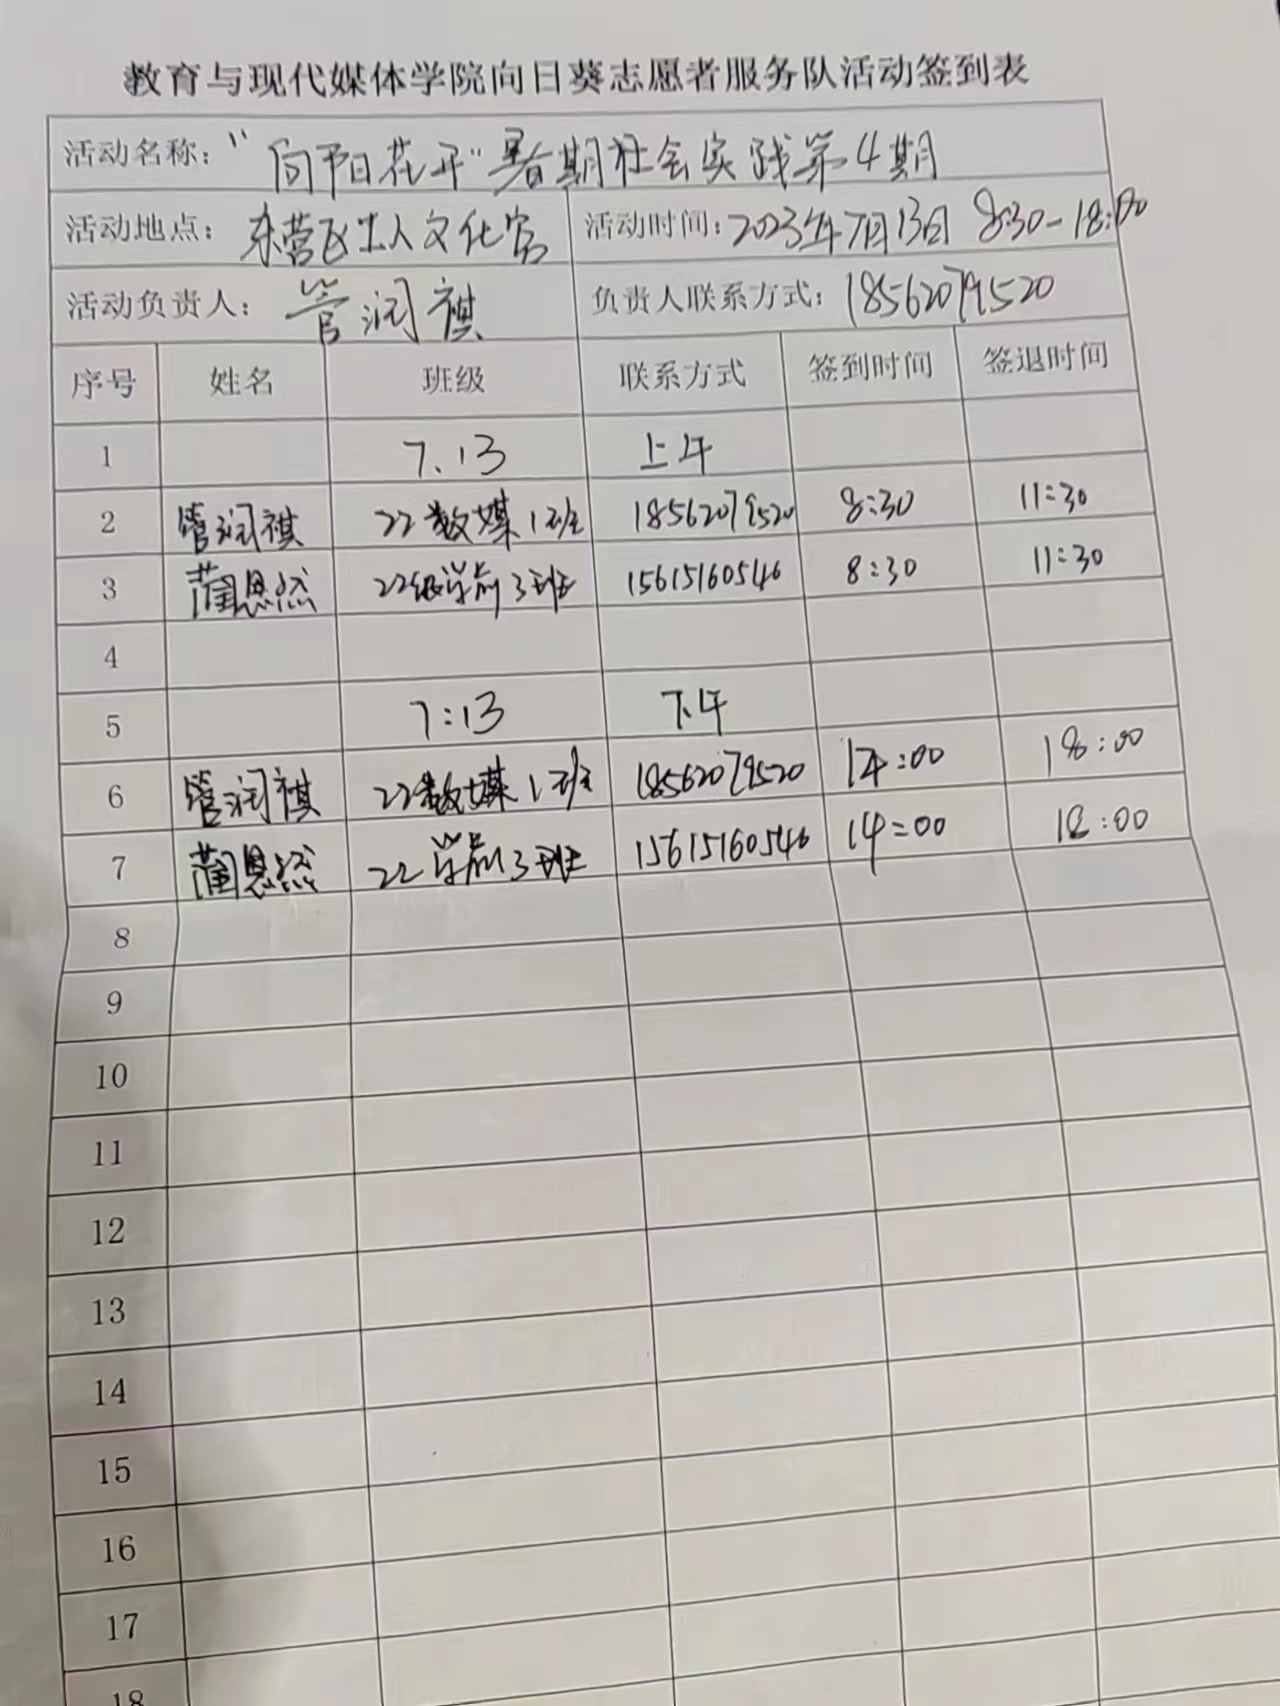 教育与现代媒体学院向日葵志愿者服务队活动签到表
活动名称："向阳花开"暑期社会实践第4期
活动地点：东营区工人文化宫 活动时间：2023年7月13日 8:30-18:00
活动负责人：管润祺 负责人联系方式：18562079520
序号 姓名 班级 联系方式 签到时间 签退时间
1 7.13 上午
2 管润祺 22数媒1班 18562079520 8:30 11:30
3 蔺恩然 22级学前3班 15615160546 8:30 11:30
4
5 7:13 下午
6 管润祺 22数媒1班 18562079520 14:00 18:00
7 蔺恩然 22学前3班 15615160546 14=00 18:00
8
9
10
11
12
13
14
15
16
17
18